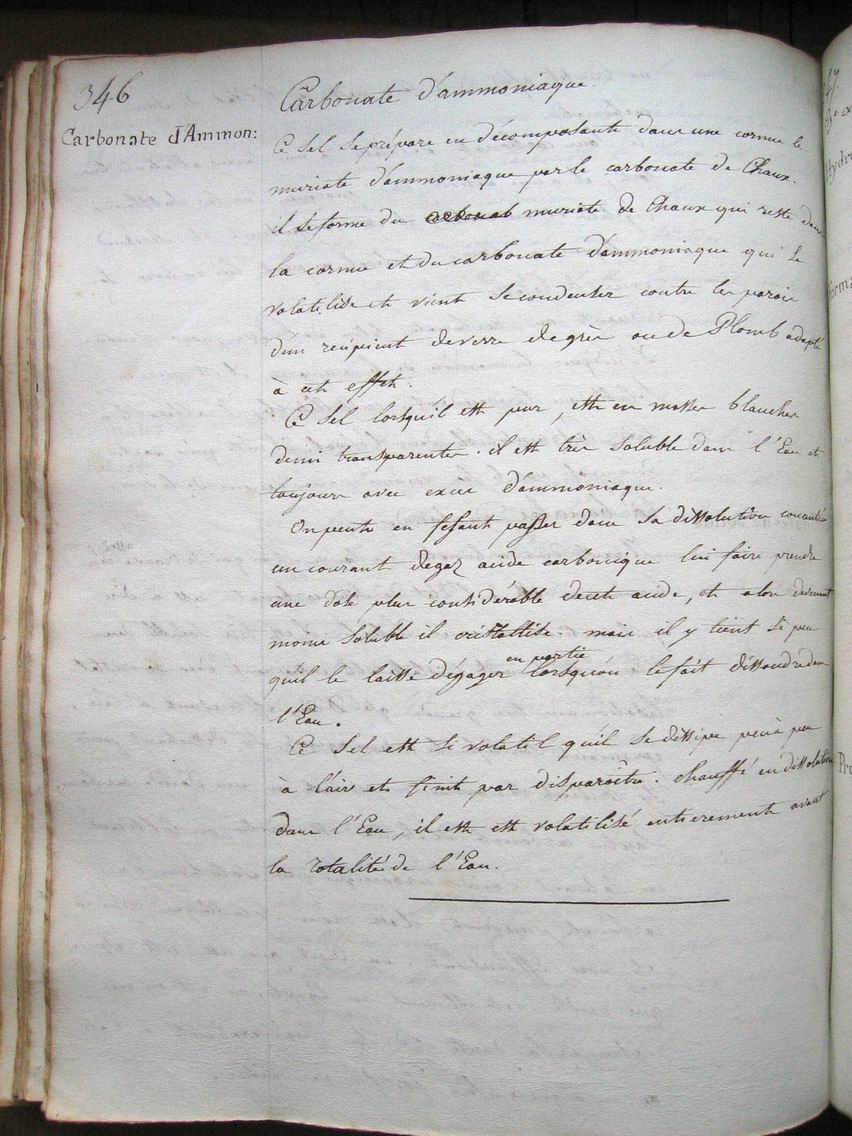 346
Carbonate d'Ammon:
Carbonate d'ammoniaque.
Ce sel se prépare en décomposant dans une cornue le
muriate d'ammoniaque par le carbonate de Chaux.
il se forme du muriate de Chaux qui reste dans
la cornue et du carbonate d'ammoniaque qui se
volatilise et vient se condenser contre les parois
d'un recipient de verre de grès ou de Plomb adapté
à cet effet.
Ce sel lorsqu'il est pur, est en masses blanches
demi transparentes. il est très soluble dans l'Eau et
toujours avec excès d'ammoniaque.
On peut en fesant passer dans sa dissolution concentrée
un courant de gaz acide carbonique lui faire prendre
une dose plus considérable de cet acide, et alors devenant
moins soluble il cristallise. mais il y tient si peu
qu'il le laisse dégager en partie lorsqu'on le fait dissoudre dans
l'Eau.
Ce sel est si volatil qu'il se dissipe peu à peu
à l'air et finit par disparoître. chauffé en dissolution
dans l'Eau, il est est volatilisé entierement avant
la totalité de l'Eau.